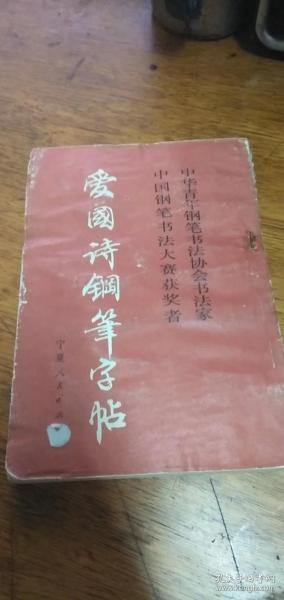 中华青年钢笔书法协会书法家
中国钢笔书法大赛获奖者
爱國诗鋼筆字帖
宁夏人民出
孔夫子旧书网